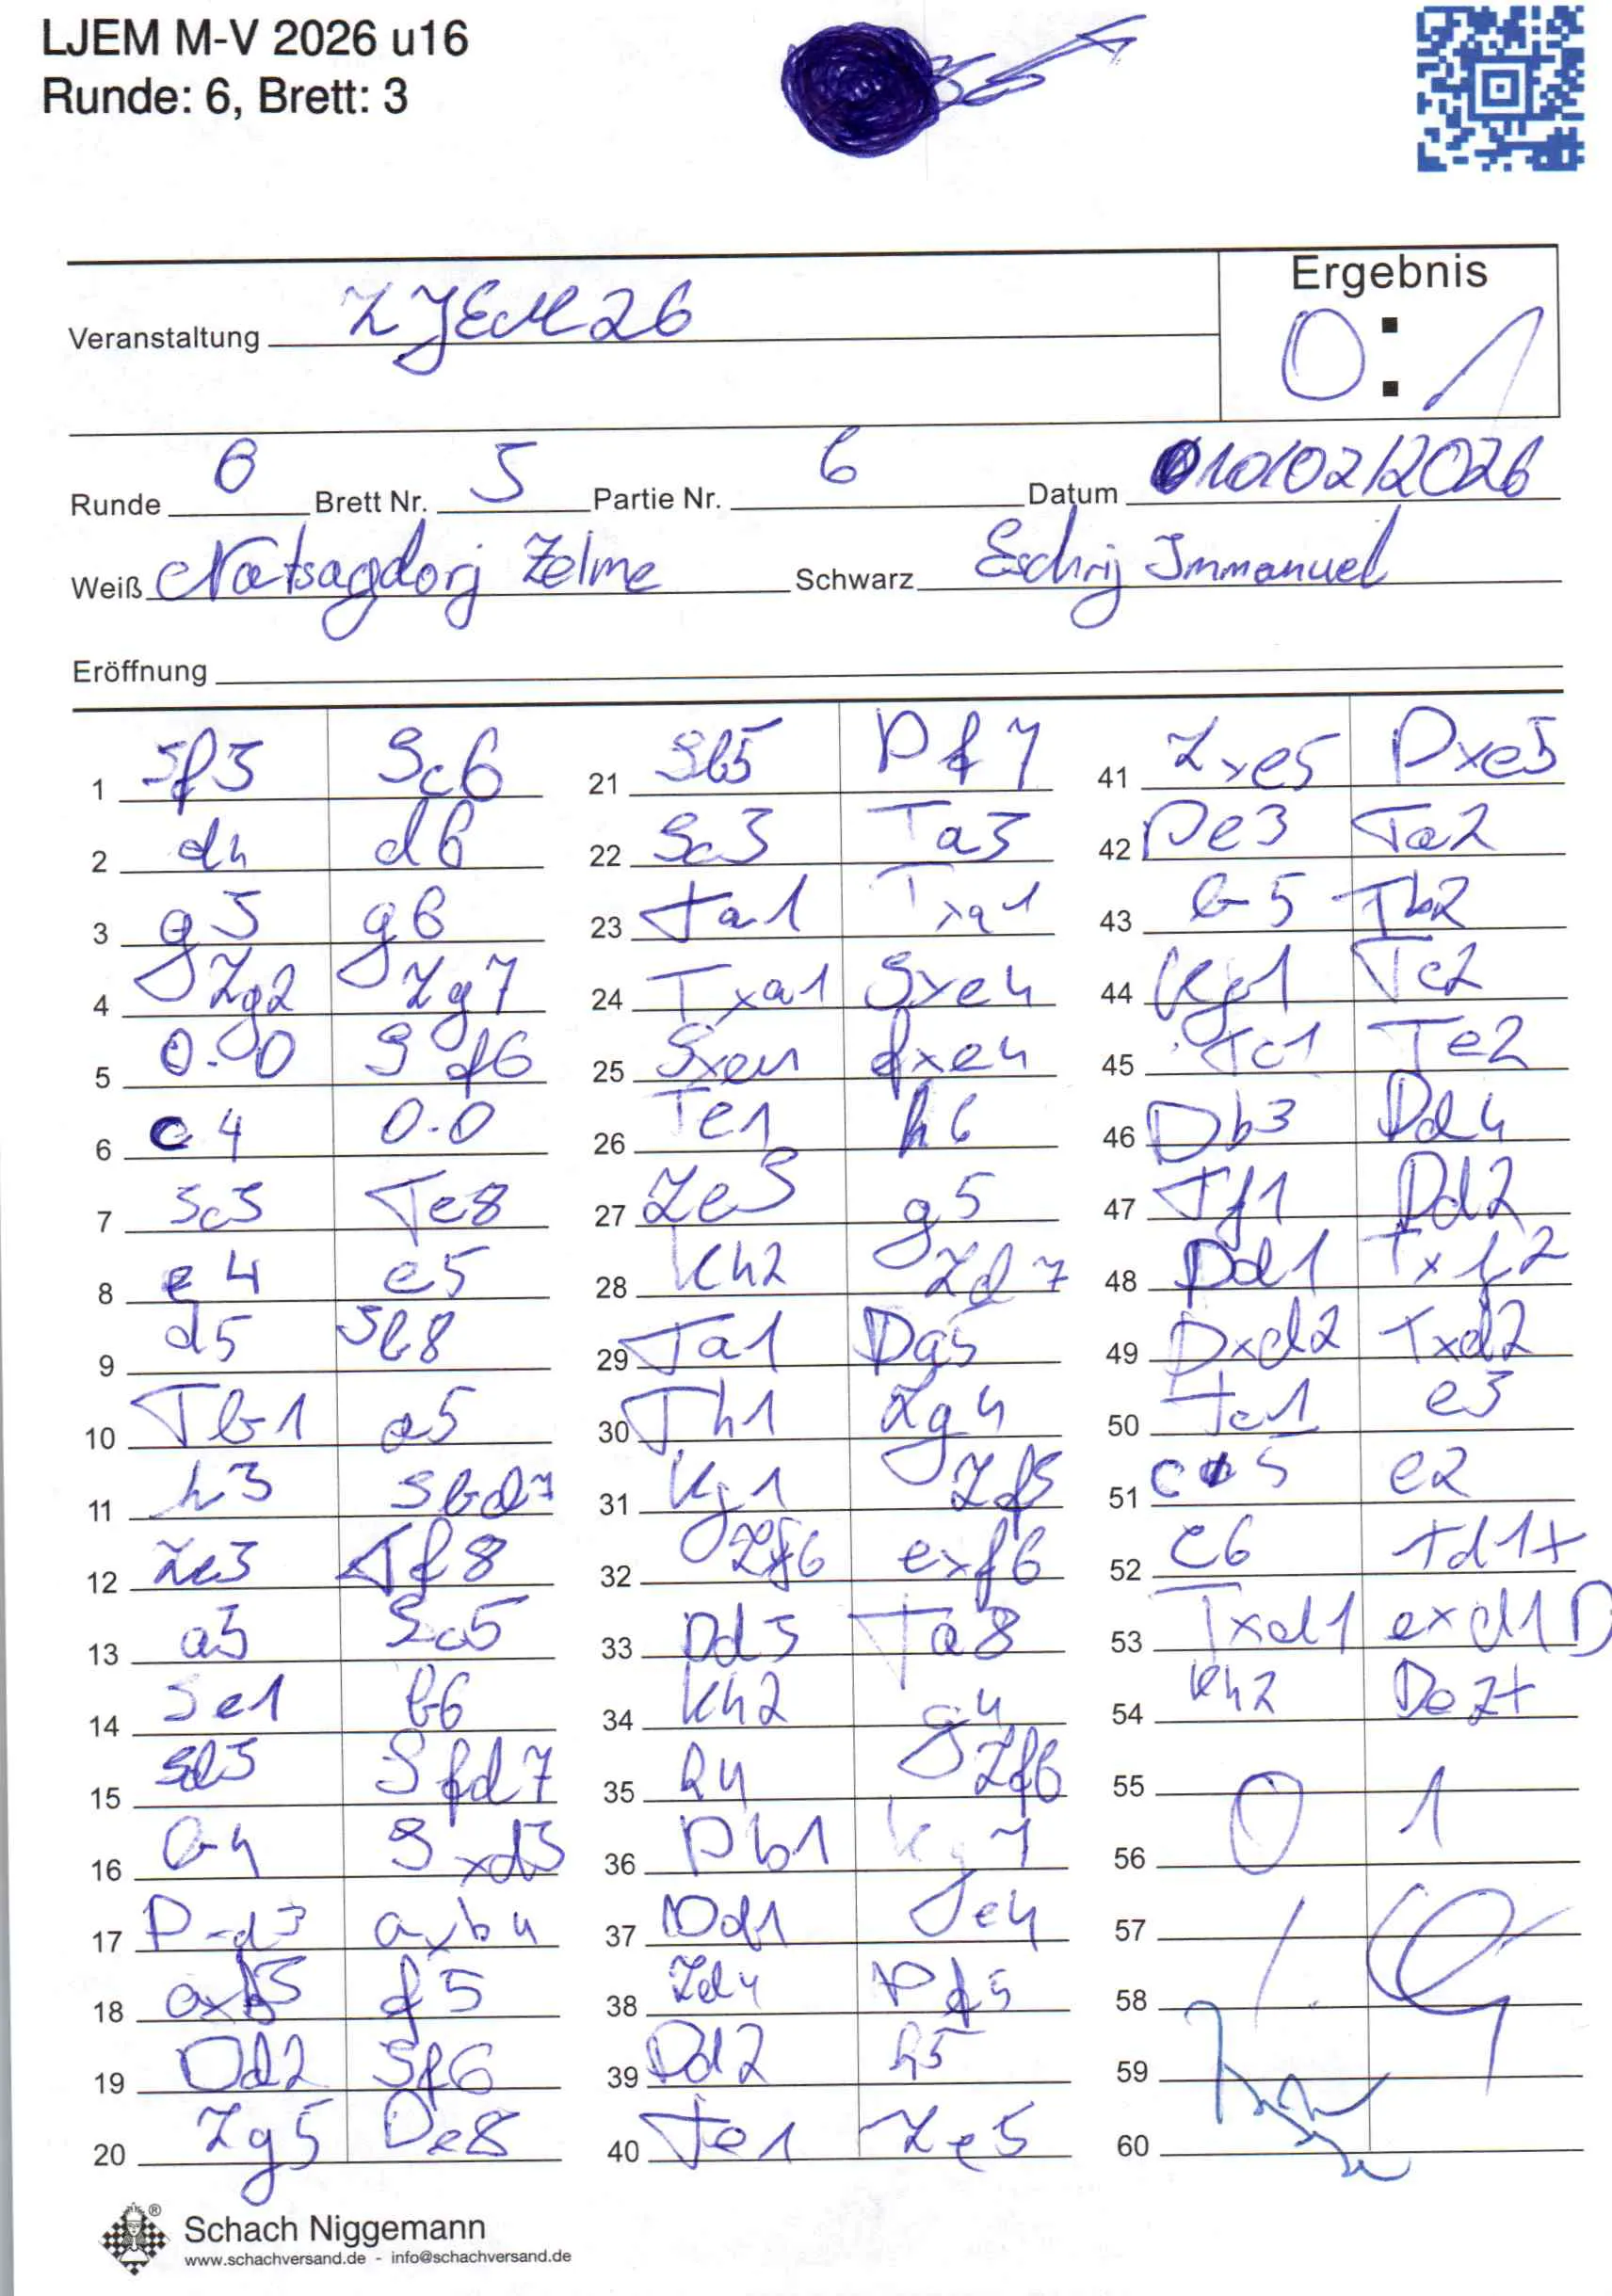 LJEM M-V 2026 u16
Runde: 6, Brett: 3
Veranstaltung LJEM 26
Ergebnis
0 : 1
Runde 6 Brett Nr. 5 Partie Nr. 6 Datum 10/02/2026
Weiß Natsagdorj Zelme Schwarz Eschrij Immanuel
Eröffnung
1 Sf3 Sc6
2 d4 d6
3 g3 g6
4 Lg2 Lg7
5 0-0 Sf6
6 c4 0-0
7 Sc3 Te8
8 e4 e5
9 d5 Sb8
10 Tb1 a5
11 h3 Sbd7
12 Le3 Tf8
13 a3 Sc5
14 Se1 b6
15 Sd3 Sfd7
16 b4 Sxd3
17 Dxd3 axb4
18 axb5 f5
19 Dd2 Sf6
20 Lg5 De8
21 Sb5 Df7
22 Sc3 Ta3
23 Ta1 Txa1
24 Txa1 Sxe4
25 Sxe4 fxe4
26 Te1 h6
27 Le3 g5
28 Kh2 Ld7
29 Ta1 Dg5
30 Th1 Lg4
31 Kg1 Lf5
32 Lf6 exf6
33 Dd3 Ta8
34 Kh2 g4
35 h4 Lf6
36 Db1 Kg7
37 Dd1 Je4
38 Ld4 Df5
39 Dd2 h5
40 Te1 Le5
41 Lxe5 Dxe5
42 De3 Ta2
43 b5 Tb2
44 Kg1 Tc2
45 Tc1 Te2
46 Db3 Dd4
47 Tf1 Dd2
48 Dd1 Txf2
49 Dxd2 Txd2
50 Tc1 e3
51 c5 e2
52 c6 Td1+
53 Txd1 exd1D
54 Kh2 De2+
55 0 1
56
57
58
59
60
Schach Niggemann
www.schachversand.de - info@schachversand.de